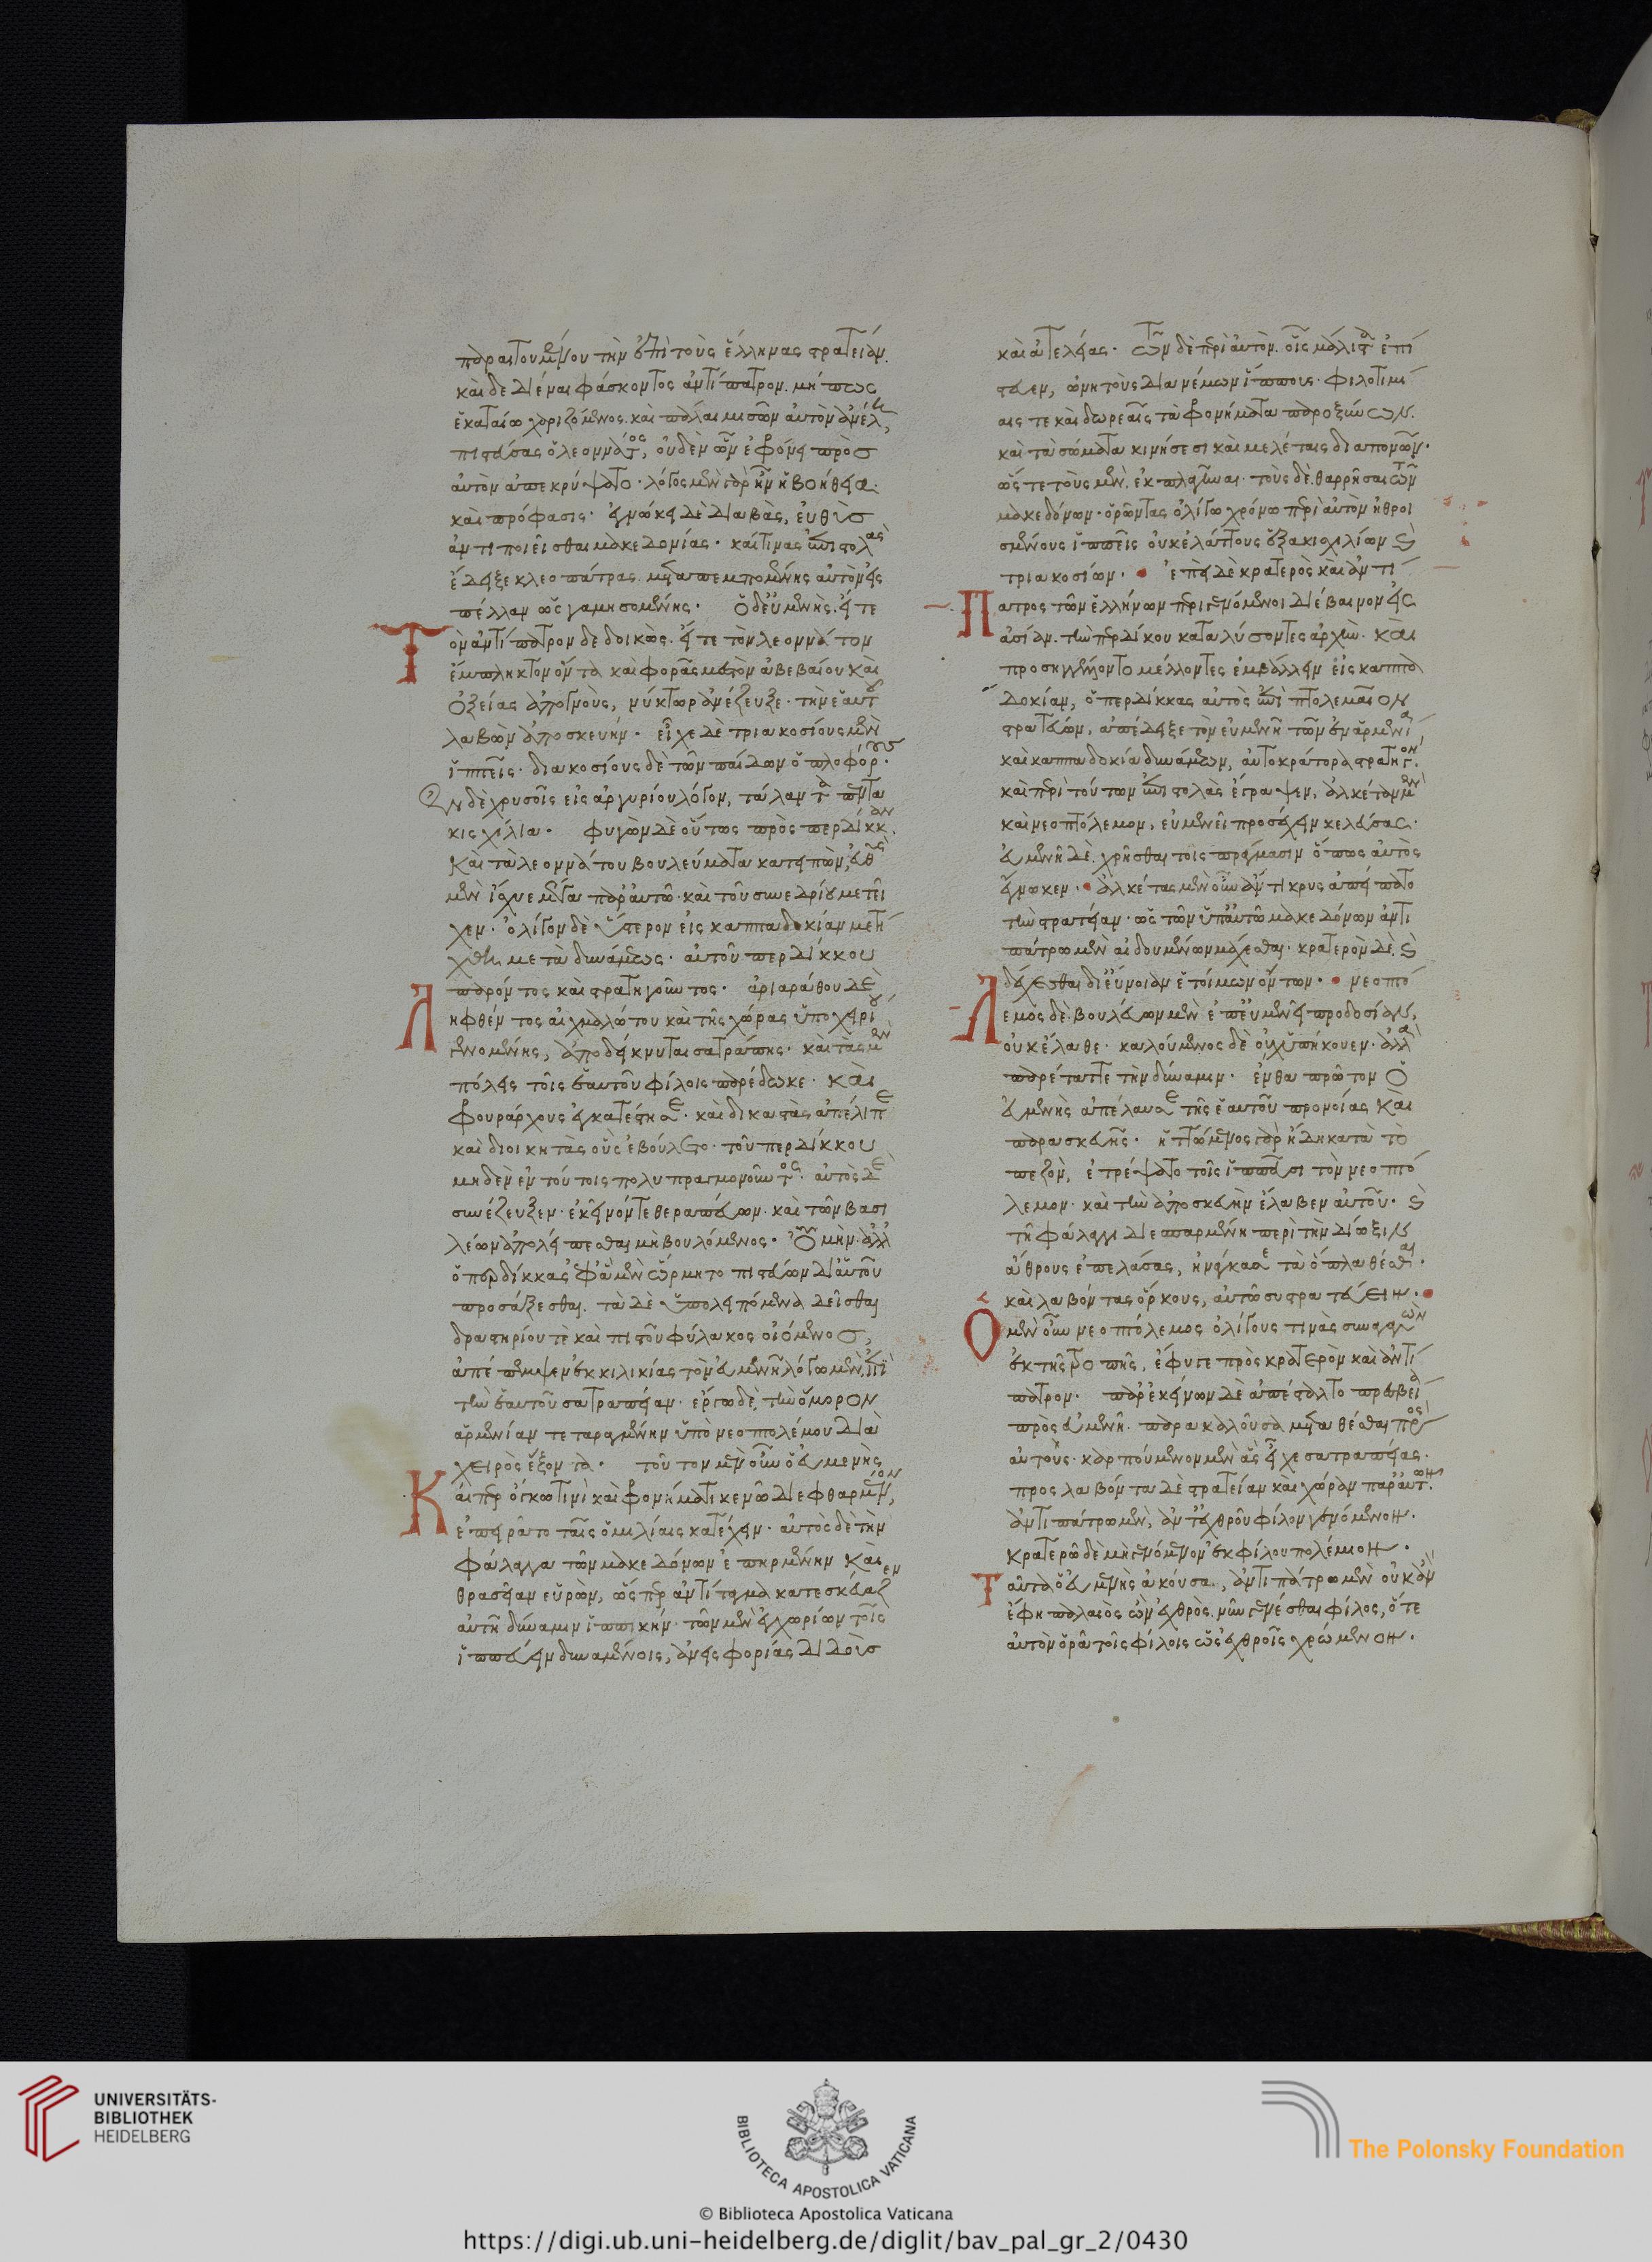 παραιτουμένου τὴν ἐπὶ τοὺς ἕλληνας στρατείαν.
καὶ δεδιέναι φάσκοντος ἀντίπατρον. μή πως
ἑκαταίω χαριζόμενος. καὶ πάλαι μισῶν αὐτὸν ἀνέλη,
πιστεύσας ὁ λεοννάτος, οὐδὲν ὧν ἐφρόνει πρὸς
αὐτὸν ἀπεκρύψατο. λόγος μὲν γὰρ ἦν ἡ βοήθεια.
καὶ πρόφασις. ἐγνώκει δὲ διαβὰς, εὐθὺς
ἀντιποιεῖσθαι μακεδονίας. καί τινας ἐπιστολὰς
ἔδειξε κλεοπάτρας. μεταπεμπομένης αὐτὸν εἰς
πέλλαν ὡς γαμησομένης. ὁ δ' εὐμένης. εἴτε
τὸν ἀντίπατρον δεδοικὼς. εἴτε τὸν λεοννάτον
ἔμπληκτον ὄντα καὶ φορᾶς μεστὸν ἀβεβαίου καὶ
ὀξείας ἀπογνοὺς, νύκτωρ ἀνέζευξε. τὴν ἑαυτοῦ
λαβὼν ἀποσκευήν. εἶχε δὲ τριακοσίους μὲν
ἱππεῖς. διακοσίους δὲ τῶν παίδων ὁπλοφόρους.
ἐν δὲ χρυσοῖς εἰς ἀργυρίου λόγον, τάλαντα πεντα
κισχίλια. φυγὼν δὲ οὕτως πρὸς περδίκκαν.
καὶ τὰ λεοννάτου βουλεύματα κατειπών, εὐθὺς
μὲν ἴσχυε μέγα παρ' αὐτῶ. καὶ τοῦ συνεδρίου μετεῖ
χεν. ὀλίγον δὲ ὕστερον εἰς καππαδοκίαν κατή
χθη μετὰ δυνάμεως. αὐτοῦ περδίκκου
παρόντος καὶ στρατηγοῦντος. ἀριαράθου δὲ
ληφθέντος αἰχμαλώτου καὶ τῆς χώρας ὑποχειρίου
γενομένης, ἀποδείκνυται σατράπης. καὶ τὰς μὲν
πόλεις τοῖς ἑαυτοῦ φίλοις παρέδωκε. καὶ
φρουράρχους ἐγκατέστησε. καὶ δικαστὰς ἀπέλιπε
καὶ διοικητὰς οὓς ἐβούλετο. τοῦ περδίκκου
μηδὲν ἐν τούτοις πολυπραγμονοῦντος. αὐτὸς δὲ
συνέζευξεν. ἐκεῖνόν τε θεραπεύων. καὶ τῶν βασι
λέων ἀπολείπεσθαι μὴ βουλόμενος. οὐ μὴν ἀλλ'
ὁ περδίκκας ἐφ' ἃ μὲν ὥρμητο πιστεύων δι' αὑτοῦ
προσάξεσθαι. τὰ δὲ ὑπολειπόμενα δεῖσθαι
δραστηρίου τὲ καὶ πιστοῦ φύλακος οἰόμενος,
ἀπέπεμψεν ἐκ κιλικίας τὸν εὐμένη λόγω μὲν, ἐπὶ
τὴν ἑαυτοῦ σατραπείαν. ἔργω δὲ, τὴν ὅμορον
ἀρμενίαν τεταραγμένην ὑπὸ νεοπτολέμου διὰ
χειρὸς ἕξοντα. τοῦτον μὲν οὖν ὁ εὐμένης
καίπερ ὄγκω τινὶ καὶ φρονήματι κενῶ διεφθαρμένον,
ἐπειρᾶτο ταῖς ὁμιλίαις κατέχειν. αὐτὸς δὲ τὴν
φάλαγγα τῶν μακεδόνων ἐπηρμένην καὶ
θρασεῖαν εὑρὼν, ὥσπερ ἀντίταγμα κατεσκεύαζεν
αὐτῆ δύναμιν ἱππικήν. τῶν μὲν ἐγχωρίων τοῖς
ἱππεύειν δυναμένοις, ἀνεισφορίας διδοὺς
καὶ ἀτελείας. τῶν δὲ περὶ αὐτὸν. οἷς μάλιστα ἐπί
στευεν, ὠνητοὺς διανέμων ἵππους. φιλοτιμί
αις τε καὶ δωρεαῖς τὰ φρονήματα παροξύνων.
καὶ τὰ σώματα κινήσεσι καὶ μελέταις διαπονῶν.
ὥστε τοὺς μὲν. ἐκπλαγῆναι. τοὺς δὲ. θαρρῆσαι τῶν
μακεδόνων. ὁρῶντας ὀλίγω χρόνω περὶ αὐτὸν ἠθροι
σμένους ἱππεῖς οὐκ ἐλάττους ἑξακισχιλίων καὶ
τριακοσίων. ἐπεὶ δὲ κρατερὸς καὶ ἀντί
πατρος τῶν ἑλλήνων περιγενόμενοι διέβαινον εἰς
ἀσίαν. τὴν περδίκου καταλύσοντες ἀρχὴν. καὶ
προσηγγέλλοντο μέλλοντες ἐμβάλλειν εἰς καππα
δοκίαν, ὁ περδίκκας αὐτὸς ἐπὶ πτολεμαῖον
στρατεύων. ἀπέδειξε τὸν εὐμένη τῶν ἐν ἀρμενία
καὶ καππαδοκία δυνάμεων, αὐτοκράτορα στρατηγόν.
καὶ περὶ τούτων ἐπιστολὰς ἔγραψεν, ἀλκέταν μὲν
καὶ νεοπτόλεμον, εὐμένει προσέχειν κελεύσας.
εὐμένη δὲ. χρῆσθαι τοῖς πράγμασιν ὅπως αὐτὸς
ἔγνωκεν. ἀλκέτας μὲν οὖν ἄντικρυς ἀπείπατο
τὴν στρατείαν. ὡς τῶν ὑπ' αὐτῶ μακεδόνων ἀντι
πάτρω μὲν αἰδουμένων μάχεσθαι. κρατερὸν δὲ. καὶ
δέχεσθαι δι' εὔνοιαν ἑτοίμων ὄντων. νεοπτό
λεμος δὲ. βουλεύων μὲν ἐπ' εὐμένει προδοσίαν,
οὐκ ἔλαθε. καλούμενος δὲ οὐχ ὑπήκουεν. ἀλλὰ
παρέταττε τὴν δύναμιν. ἔνθα πρῶτον ὁ
εὐμένης ἀπέλαυσε τῆς ἑαυτοῦ προνοίας καὶ
παρασκευῆς. ἡττώμενος γὰρ ἤδη κατὰ τὸ
πεζὸν, ἐτρέψατο τοῖς ἱππεῦσι τὸν νεοπτό
λεμον. καὶ τὴν ἀποσκευὴν ἔλαβεν αὐτοῦ. καὶ
τῆ φάλαγγι διεσπαρμένη περὶ τὴν δίωξιν
ἀθρους ἐπελάσας, ἠνάγκασε τὰ ὅπλα θέσθαι.
καὶ λαβόντας ὅρκους, αὐτῶ συστρατεύειν.
ὁ μὲν οὖν νεοπτόλεμος ὀλίγους τινὰς συναγαγὼν
ἐκ τῆς τροπῆς, ἔφυγε πρὸς κρατερὸν καὶ ἀντί
πατρον. παρ' ἐκείνων δὲ ἀπέσταλτο πρεσβεία
πρὸς εὐμένη. παρακαλοῦσα μεταθέσθαι πρὸς
αὐτοὺς. καρπούμενον μὲν ἃς εἶχε σατραπείας.
προσλαβόντα δὲ στρατείαν καὶ χώραν παρ' αὐτῶν.
ἀντιπάτρω μὲν, ἀντ' ἐχθροῦ φίλον γενόμενον.
κρατερῶ δὲ μὴ γενόμενον ἐκ φίλου πολέμιον.
ταῦτα ὁ εὐμένης ἀκούσας, ἀντιπάτρω μὲν οὐκ ἂν
ἔφη παλαιὸς ὢν ἐχθρὸς. νῦν γενέσθαι φίλος, ὅτε
αὐτὸν ὁρᾶ τοῖς φίλοις ὡς ἐχθροῖς χρώμενον.
UNIVERSITÄTS-
BIBLIOTHEK
HEIDELBERG
BIBLIOTECA APOSTOLICA VATICANA
The Polonsky Foundation
© Biblioteca Apostolica Vaticana
https://digi.ub.uni-heidelberg.de/diglit/bav_pal_gr_2/0430